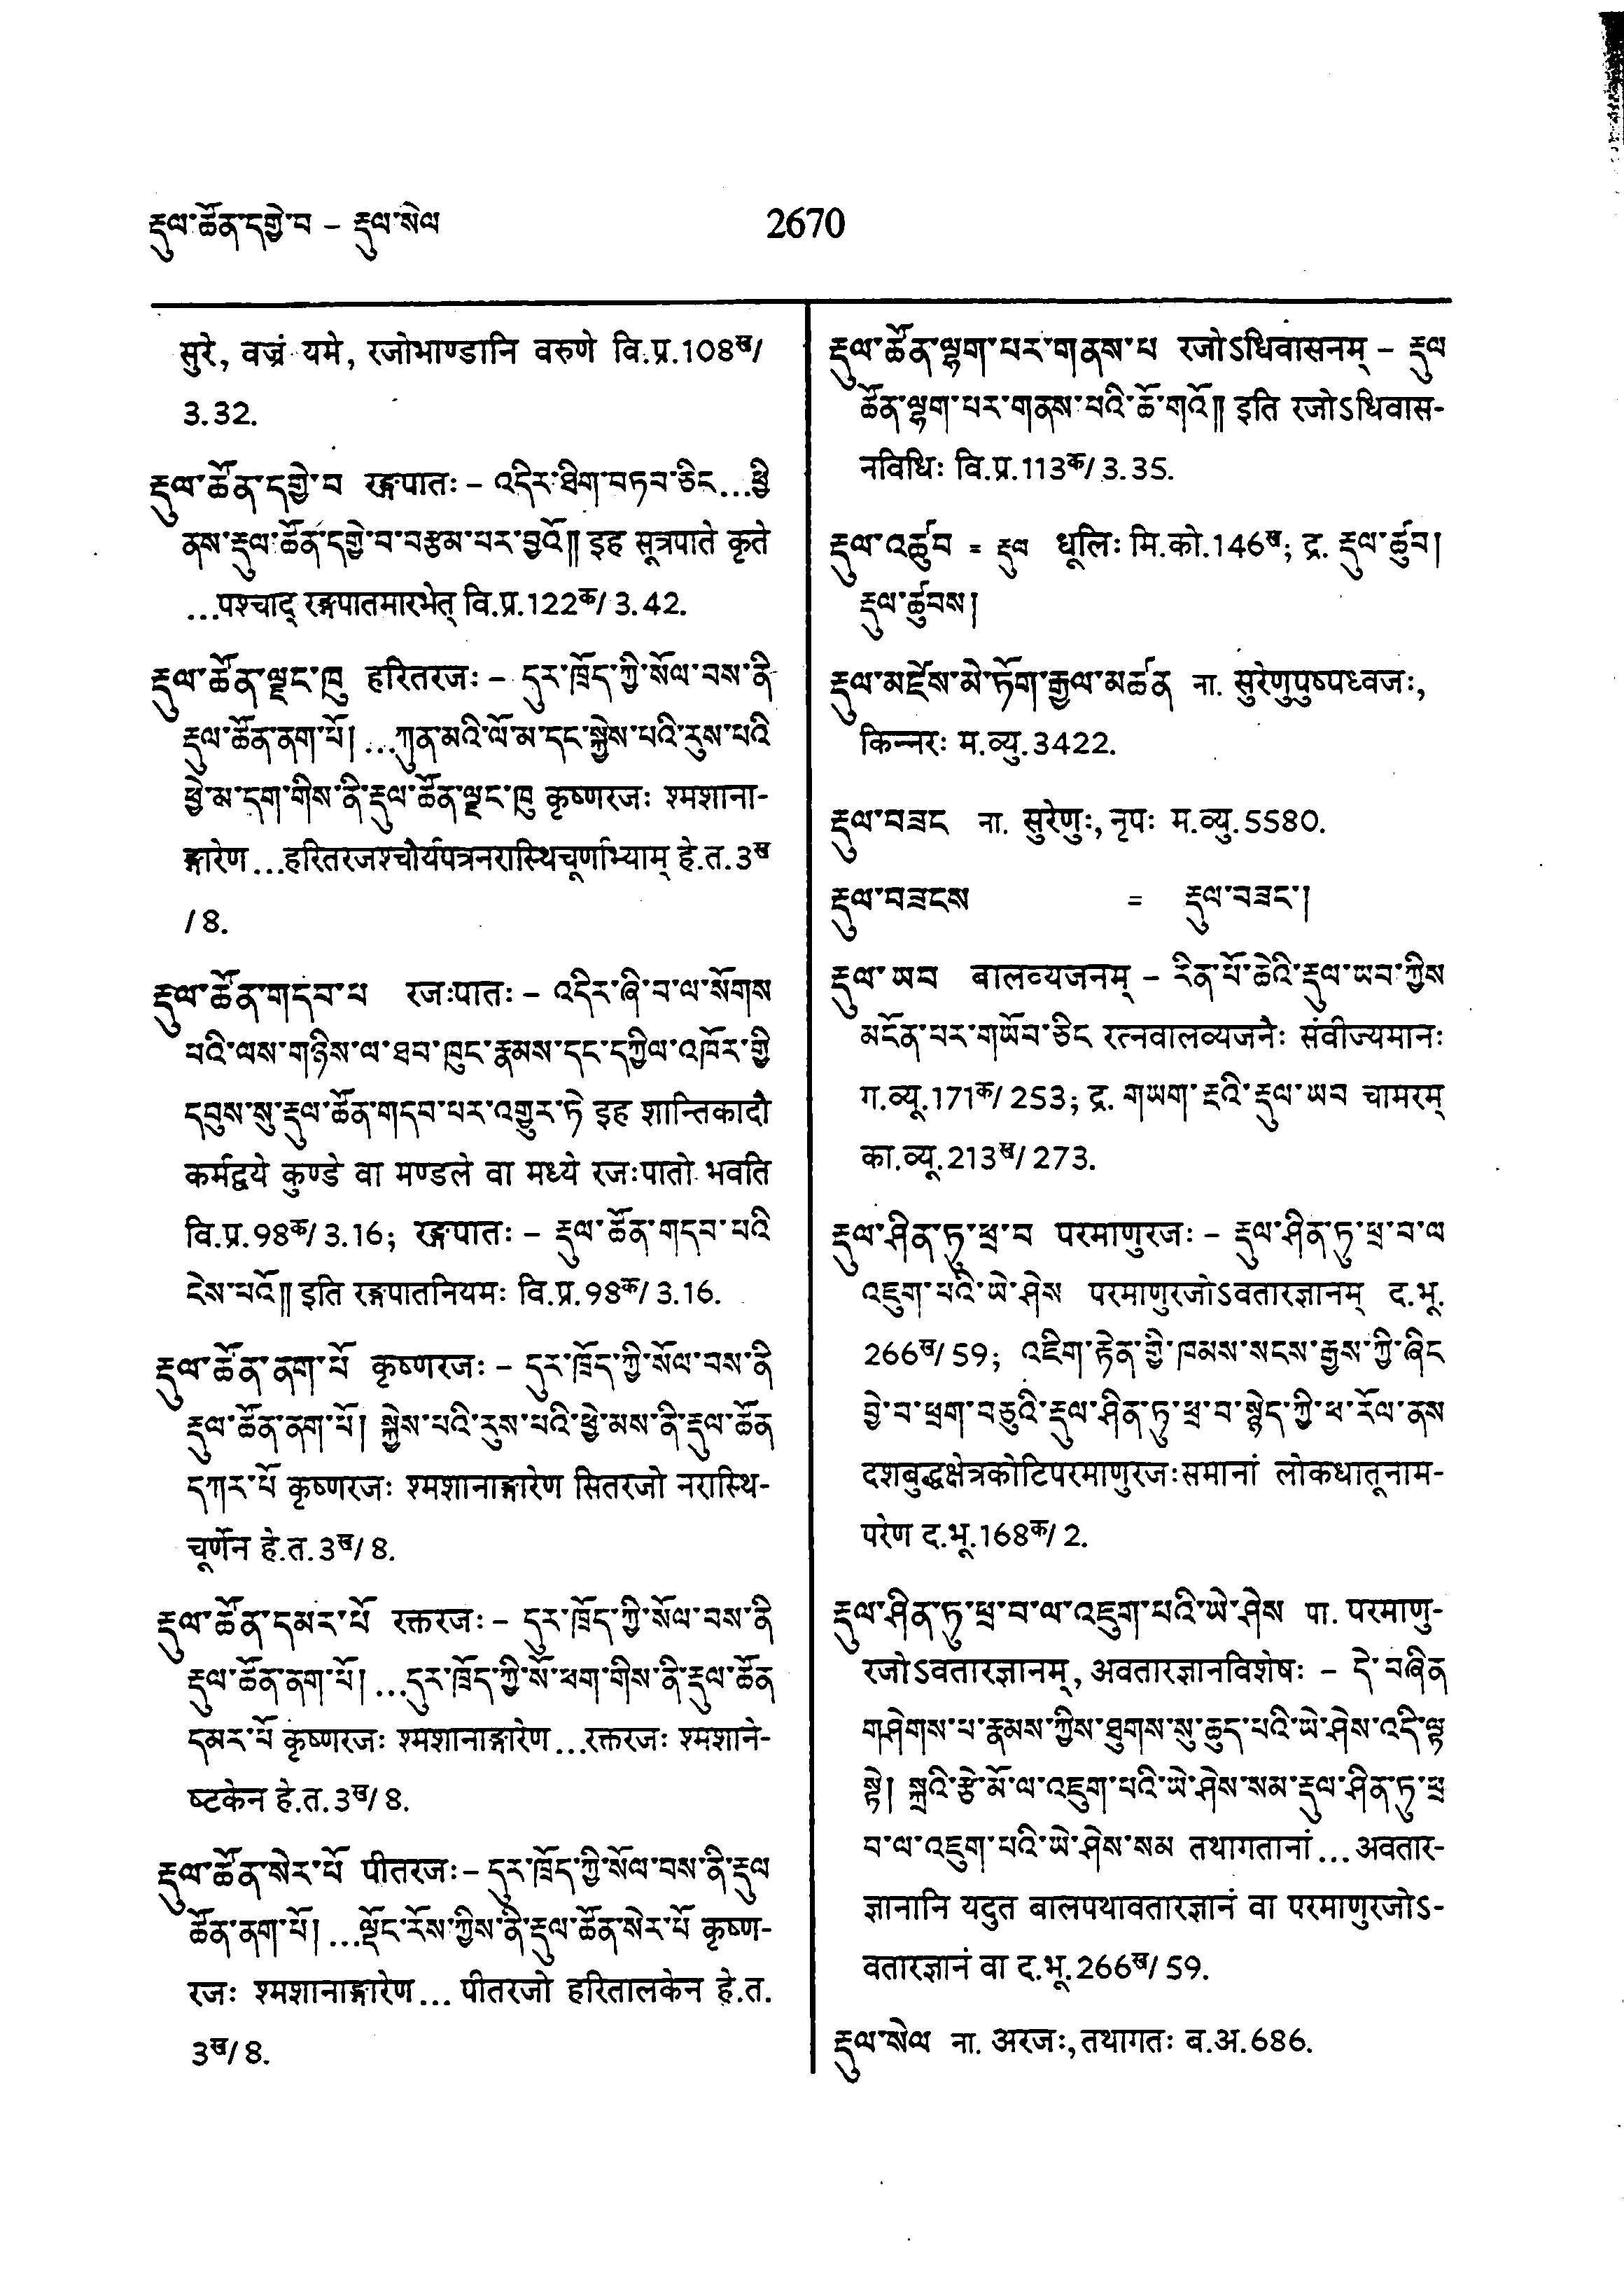 རྡུལ་ཚོན་དགྱེ་བ – རྡུལ་སེལ
2670
सुरे, वज्रं यमे, रजोभाण्डानि वरुणे वि.प्र.108ख/
3.32.
རྡུལ་ཚོན་དགྱེ་བ रङ्गपातः – འདིར་ཐིག་བཏབ་ཅིང...ཕྱི
ནས་རྡུལ་ཚོན་དགྱེ་བ་བརྩམ་པར་བྱའོ༎ इह सूत्रपाते कृते
...पश्चाद् रङ्गपातमारभेत् वि.प्र.122क/3.42.
རྡུལ་ཚོན་ལྗང་ཁུ हरितरजः – དུར་ཁྲོད་ཀྱི་སོལ་བས་ནི
རྡུལ་ཚོན་ནག་པོ། ...ཀུན་མའི་ལོ་མ་དང་སྐྱེས་པའི་རུས་པའི
ཕྱེ་མ་དག་གིས་ནི་རྡུལ་ཚོན་ལྗང་ཁུ कृष्णरजः श्मशाना-
ङ्गारेण...हरितरजश्चौर्यपत्रनरास्थिचूर्णाभ्याम् हे.त.3ख
/8.
རྡུལ་ཚོན་གདབ་པ रजःपातः – འདིར་ཞི་བ་ལ་སོགས
པའི་ལས་གཉིས་ལ་ཐབ་ཁུང་རྣམས་དང་དཀྱིལ་འཁོར་གྱི
དབུས་སུ་རྡུལ་ཚོན་གདབ་པར་འགྱུར་ཏེ इह शान्तिकादौ
कर्मद्वये कुण्डे वा मण्डले वा मध्ये रजःपातो भवति
वि.प्र.98क/3.16; रङ्गपातः – རྡུལ་ཚོན་གདབ་པའི
ངེས་པའོ༎ इति रङ्गपातनियमः वि.प्र.98क/3.16.
རྡུལ་ཚོན་ནག་པོ कृष्णरजः – དུར་ཁྲོད་ཀྱི་སོལ་བས་ནི
རྡུལ་ཚོན་ནག་པོ། སྐྱེས་པའི་རུས་པའི་ཕྱེ་མས་ནི་རྡུལ་ཚོན
དཀར་པོ कृष्णरजः श्मशानाङ्गारेण सितरजो नरास्थि-
चूर्णेन हे.त.3ख/8.
རྡུལ་ཚོན་དམར་པོ रक्तरजः – དུར་ཁྲོད་ཀྱི་སོལ་བས་ནི
རྡུལ་ཚོན་ནག་པོ། ...དུར་ཁྲོད་ཀྱི་སོ་ཕག་གིས་ནི་རྡུལ་ཚོན
དམར་པོ कृष्णरजः श्मशानाङ्गारेण...रक्तरजः श्मशाने-
ष्टकेन हे.त.3ख/8.
རྡུལ་ཚོན་སེར་པོ पीतरजः – དུར་ཁྲོད་ཀྱི་སོལ་བས་ནི་རྡུལ
ཚོན་ནག་པོ། ...ལྡོང་རོས་ཀྱིས་ནི་རྡུལ་ཚོན་སེར་པོ कृष्ण-
रजः श्मशानाङ्गारेण... पीतरजो हरितालकेन हे.त.
3ख/8.
རྡུལ་ཚོན་ལྷག་པར་གནས་པ रजोऽधिवासनम् – རྡུལ
ཚོན་ལྷག་པར་གནས་པའི་ཆོ་གའོ༎ इति रजोऽधिवास-
नविधिः वि.प्र.113क/3.35.
རྡུལ་འཚུབ = རྡུལ धूलिः मि.को.146ख; द्र. རྡུལ་ཚུབ།
རྡུལ་ཚུབས།
རྡུལ་མཛེས་མེ་ཏོག་རྒྱལ་མཚན ना. सुरेणुपुष्पध्वजः,
किन्नरः म.व्यु.3422.
རྡུལ་བཟང ना. सुरेणुः, नृपः म.व्यु.5580.
རྡུལ་བཟངས = རྡུལ་བཟང་།
རྡུལ་ཡབ बालव्यजनम् – རིན་པོ་ཆེའི་རྡུལ་ཡབ་ཀྱིས
མངོན་པར་གཡོབ་ཅིང रत्नवालव्यजनैः संवीज्यमानः
ग.व्यू.171क/253; द्र. གཡག་རྔའི་རྡུལ་ཡབ चामरम्
का.व्यू.213ख/273.
རྡུལ་ཤིན་ཏུ་ཕྲ་བ परमाणुरजः – རྡུལ་ཤིན་ཏུ་ཕྲ་བ་ལ
འཇུག་པའི་ཡེ་ཤེས परमाणुरजोऽवतारज्ञानम् द.भू.
266ख/59; འཇིག་རྟེན་གྱི་ཁམས་སངས་རྒྱས་ཀྱི་ཞིང
བྱེ་བ་ཕྲག་བཅུའི་རྡུལ་ཤིན་ཏུ་ཕྲ་བ་སྙེད་ཀྱི་ཕ་རོལ་ནས
दशबुद्धक्षेत्रकोटिपरमाणुरजःसमानां लोकधातूनाम-
परेण द.भू.168क/2.
རྡུལ་ཤིན་ཏུ་ཕྲ་བ་ལ་འཇུག་པའི་ཡེ་ཤེས पा. परमाणु-
रजोऽवतारज्ञानम्, अवतारज्ञानविशेषः – དེ་བཞིན
གཤེགས་པ་རྣམས་ཀྱིས་ཐུགས་སུ་ཆུད་པའི་ཡེ་ཤེས་འདི་ལྟ
སྟེ། སྐྲའི་རྩེ་མོ་ལ་འཇུག་པའི་ཡེ་ཤེས་སམ་རྡུལ་ཤིན་ཏུ་ཕྲ
བ་ལ་འཇུག་པའི་ཡེ་ཤེས་སམ तथागतानां... अवतार-
ज्ञानानि यदुत बालपथावतारज्ञानं वा परमाणुरजोऽ-
वतारज्ञानं वा द.भू.266ख/59.
རྡུལ་སེལ ना. अरजः, तथागतः ब.अ.686.